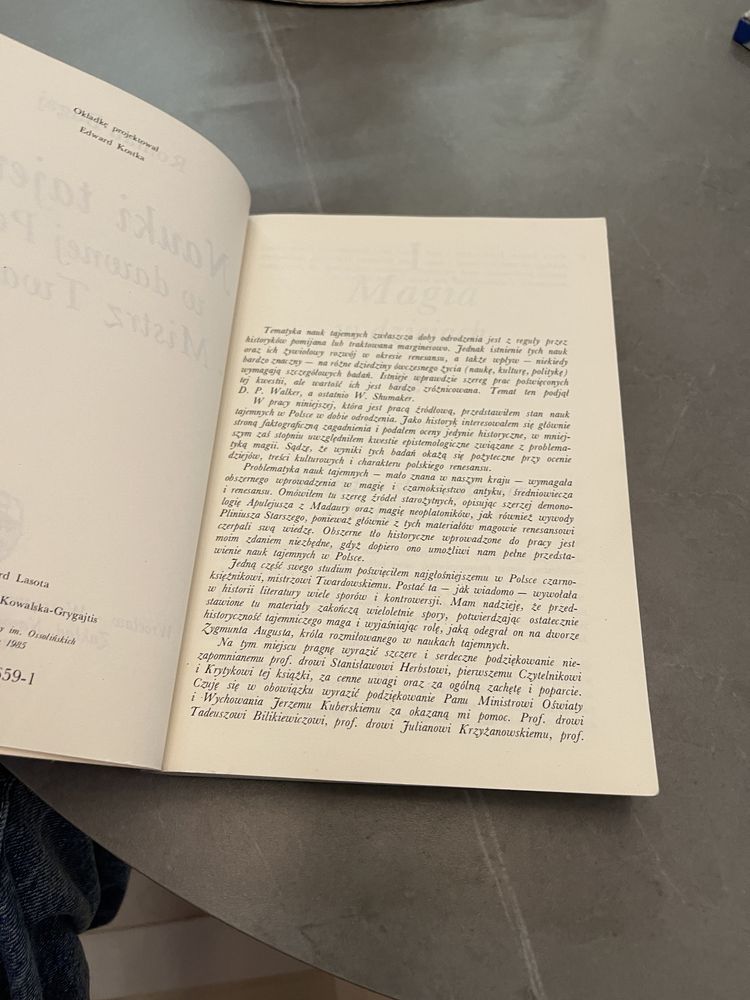 Okładkę projektował
Edward Kostka
rd Lasota
Kowalska-Grygajtis
y im. Ossolińskich
1985
659-1
Magia
Tematyka nauk tajemnych zwłaszcza doby odrodzenia jest z reguły przez
historyków pomijana lub traktowana marginesowo. Jednak istnienie tych nauk
oraz ich żywiołowy rozwój w okresie renesansu, a także wpływ — niekiedy
bardzo znaczny — na różne dziedziny ówczesnego życia (naukę, kulturę, politykę)
wymagają szczegółowych badań. Istnieje wprawdzie szereg prac poświęconych
tej kwestii, ale wartość ich jest bardzo zróżnicowana. Temat ten podjął
D. P. Walker, a ostatnio W. Shumaker.
W pracy niniejszej, która jest pracą źródłową, przedstawiłem stan nauk
tajemnych w Polsce w dobie odrodzenia. Jako historyk interesowałem się głównie
stroną faktograficzną zagadnienia i podałem oceny jedynie historyczne, w mniej-
szym zaś stopniu uwzględniłem kwestie epistemologiczne związane z problema-
tyką magii. Sądzę, że wyniki tych badań okażą się pożyteczne przy ocenie
dziejów, treści kulturowych i charakteru polskiego renesansu.
Problematyka nauk tajemnych — mało znana w naszym kraju — wymagała
obszernego wprowadzenia w magię i czarnoksięstwo antyku, średniowiecza
i renesansu. Omówiłem tu szereg źródeł starożytnych, opisując szerzej demono-
logię Apulejusza z Madaury oraz magię neoplatoników, jak również wywody
Pliniusza Starszego, ponieważ głównie z tych materiałów magowie renesansowi
czerpali swą wiedzę. Obszerne tło historyczne wprowadzone do pracy jest
moim zdaniem niezbędne, gdyż dopiero ono umożliwi nam pełne przedsta-
wienie nauk tajemnych w Polsce.
Jedną część swego studium poświęciłem najgłośniejszemu w Polsce czarno-
księżnikowi, mistrzowi Twardowskiemu. Postać ta — jak wiadomo — wywołała
w historii literatury wiele sporów i kontrowersji. Mam nadzieję, że przed-
stawione tu materiały zakończą wieloletnie spory, potwierdzając ostatecznie
historyczność tajemniczego maga i wyjaśniając rolę, jaką odegrał on na dworze
Zygmunta Augusta, króla rozmiłowanego w naukach tajemnych.
Na tym miejscu pragnę wyrazić szczere i serdeczne podziękowanie nie-
zapomnianemu prof. drowi Stanisławowi Herbstowi, pierwszemu Czytelnikowi
i Krytykowi tej książki, za cenne uwagi oraz za ogólną zachętę i poparcie.
Czuję się w obowiązku wyrazić podziękowanie Panu Ministrowi Oświaty
i Wychowania Jerzemu Kuberskiemu za okazaną mi pomoc. Prof. drowi
Tadeuszowi Bilikiewiczowi, prof. drowi Julianowi Krzyżanowskiemu, prof.